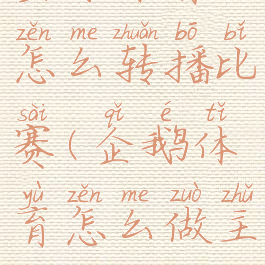 zěn me zhuǎn bō bǐ
怎么转播比
sài qǐ é tǐ
赛(企鹅体
yù zěn me zuò zhǔ
育怎么做主